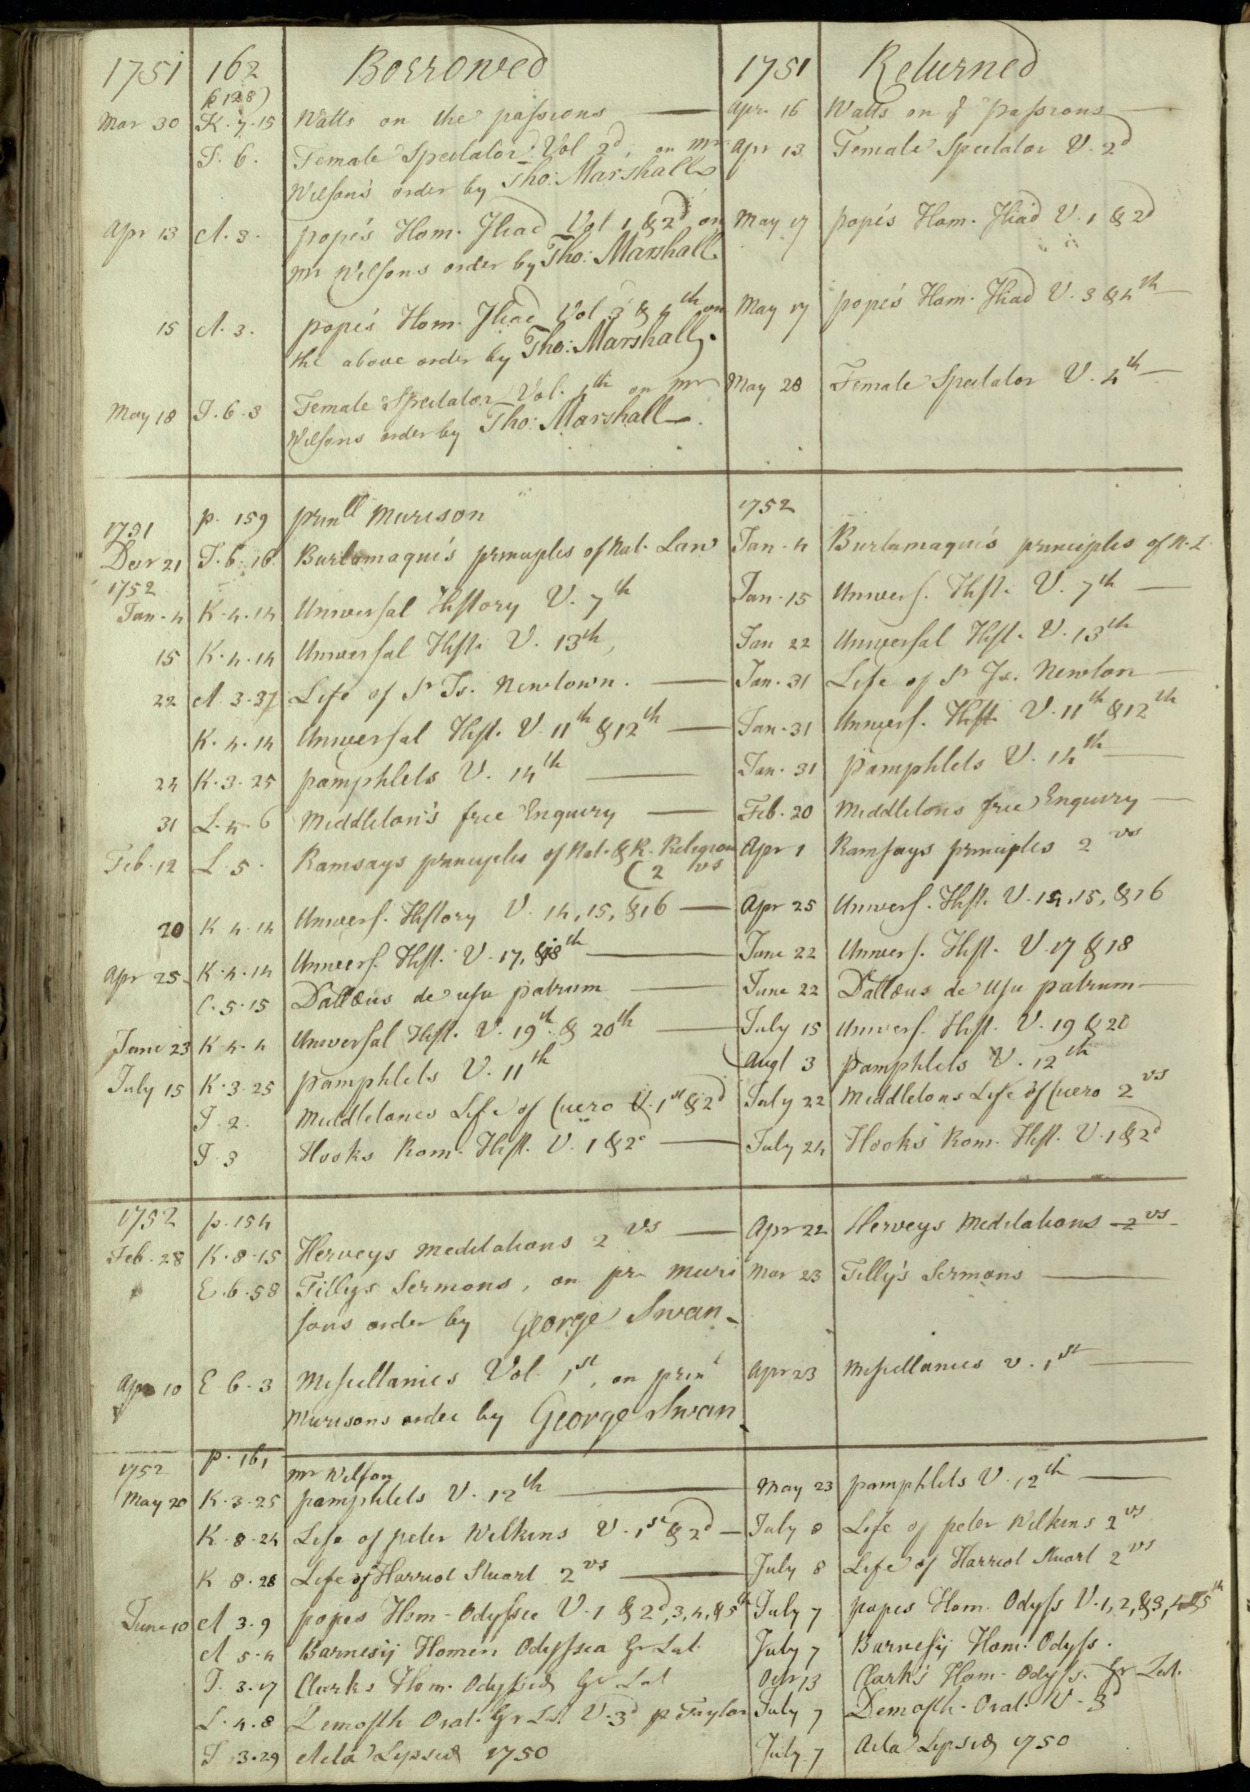 1751 162 Borrowed 1751 Returned
(p 128)
Mar 30 K.7.15 Watts on the passions Apr. 16 Watts on ye passions
J. 6. Female Spectator Vol 2d, on Mr Apr 13 Female Spectator V. 2d
Wilsons order by Tho: Marshall
Apr 13 A. 3. popes Hom. Iliad Vol 1 & 2d on May 17 popes Hom. Iliad V. 1 & 2d
Mr Wilsons order by Tho: Marshall
15 A. 3. popes Hom. Iliad Vol 3 & 4th on May 17 popes Hom. Iliad V. 3 & 4th
the above order by Tho: Marshall
May 18 J. 6. 3 Female Spectator Vol. 4th on Mr May 28 Female Spectator V. 4th
Wilsons order by Tho: Marshall
1751 p. 159 prinll Murison 1752
Decr 21 J. 6. 16 Burlamaqui's principles of Nat. Law Jan. 4 Burlamaqui's principles of N. L.
1752
Jan. 4 K. 4. 14 Universal History V. 7th Jan. 15 Univers. Hist. V. 7th
15 K. 4. 14 Universal Hist. V. 13th, Jan 22 Universal Hist. V. 13th
22 A 3. 37 Life of Sr Is. Newtown. Jan. 31 Life of Sr Is. Newton
K. 4. 14 Universal Hist. V. 11th & 12th Jan. 31 Univers. Hist. V. 11th & 12th
24 K. 3. 25 pamphlets V. 14th Jan. 31 pamphlets V. 14th
31 L. 4. 6 Middleton's free Enquiry Feb. 20 Middletons free Enquiry
Feb. 12 L. 5. Ramsays principles of Nat. & R. Religion Apr 1 Ramsays principles 2 vs
(2 vs
20 K 4. 14 Univers. History V. 14, 15, & 16 Apr 25 Univers. Hist. V. 14, 15, & 16
Apr 25 K. 4. 14 Univers. Hist. V. 17, & 18th June 22 Univers. Hist. V. 17 & 18
C. 5. 15 Dallæus de usu patrum June 22 Dallæus de usu patrum
June 23 K 4. 4 Universal Hist. V. 19th & 20th July 15 Univers. Hist. V. 19 & 20
July 15 K. 3. 25 pamphlets V. 11th Augt 3 pamphlets V. 12th
J. 2. Middletones Life of Cicero V. 1st & 2d July 22 Middletons Life of Cicero 2 vs
J. 3 Hooks Rom. Hist. V. 1 & 2d July 24 Hooks Rom. Hist. V. 1 & 2d
1752 p. 154
Feb. 28 K. 8. 15 Herveys Meditations 2 vs Apr 22 Herveys Meditations 2 vs
E. 6. 58 Tillys Sermons, on pr. Muri Mar 23 Tilly's Sermons
sons order by George Swan
Apr 10 E 6. 3 Miscellanies Vol. 1st, on prinl Apr 23 Miscellanies v. 1st
Murisons order by George Swan
1752 p. 161 Mr Wilson
May 20 K. 3. 25 pamphlets V. 12th May 23 pamphlets V. 12th
K. 8. 24 Life of peter Wilkins V. 1st & 2d July 8 Life of peter Wilkins 2 vs
K 8. 28 Life of Harriot Stuart 2 vs July 8 Life of Harriot Stuart 2 vs
June 10 A 3. 9 popes Hom. Odyssee V. 1 & 2d, 3, 4, & 5th July 7 popes Hom. Odyss V. 1, 2, & 3, 4 & 5th
A 5. 4 Barnesij Homeri Odyssea Gr Lat. July 7 Barnesij Hom. Odyss.
J. 3. 17 Clarks Hom. Odyssea Gr Lat Octr 13 Clark's Hom. Odyss. Gr Lat.
L. 4. 8 Demosth Orat. Gr Lat. V. 3d p Taylor July 7 Demosth. Orat. V. 3d
J 3. 29 Acta Lipsiæ 1750 July. 7 Acta Lipsiæ 1750